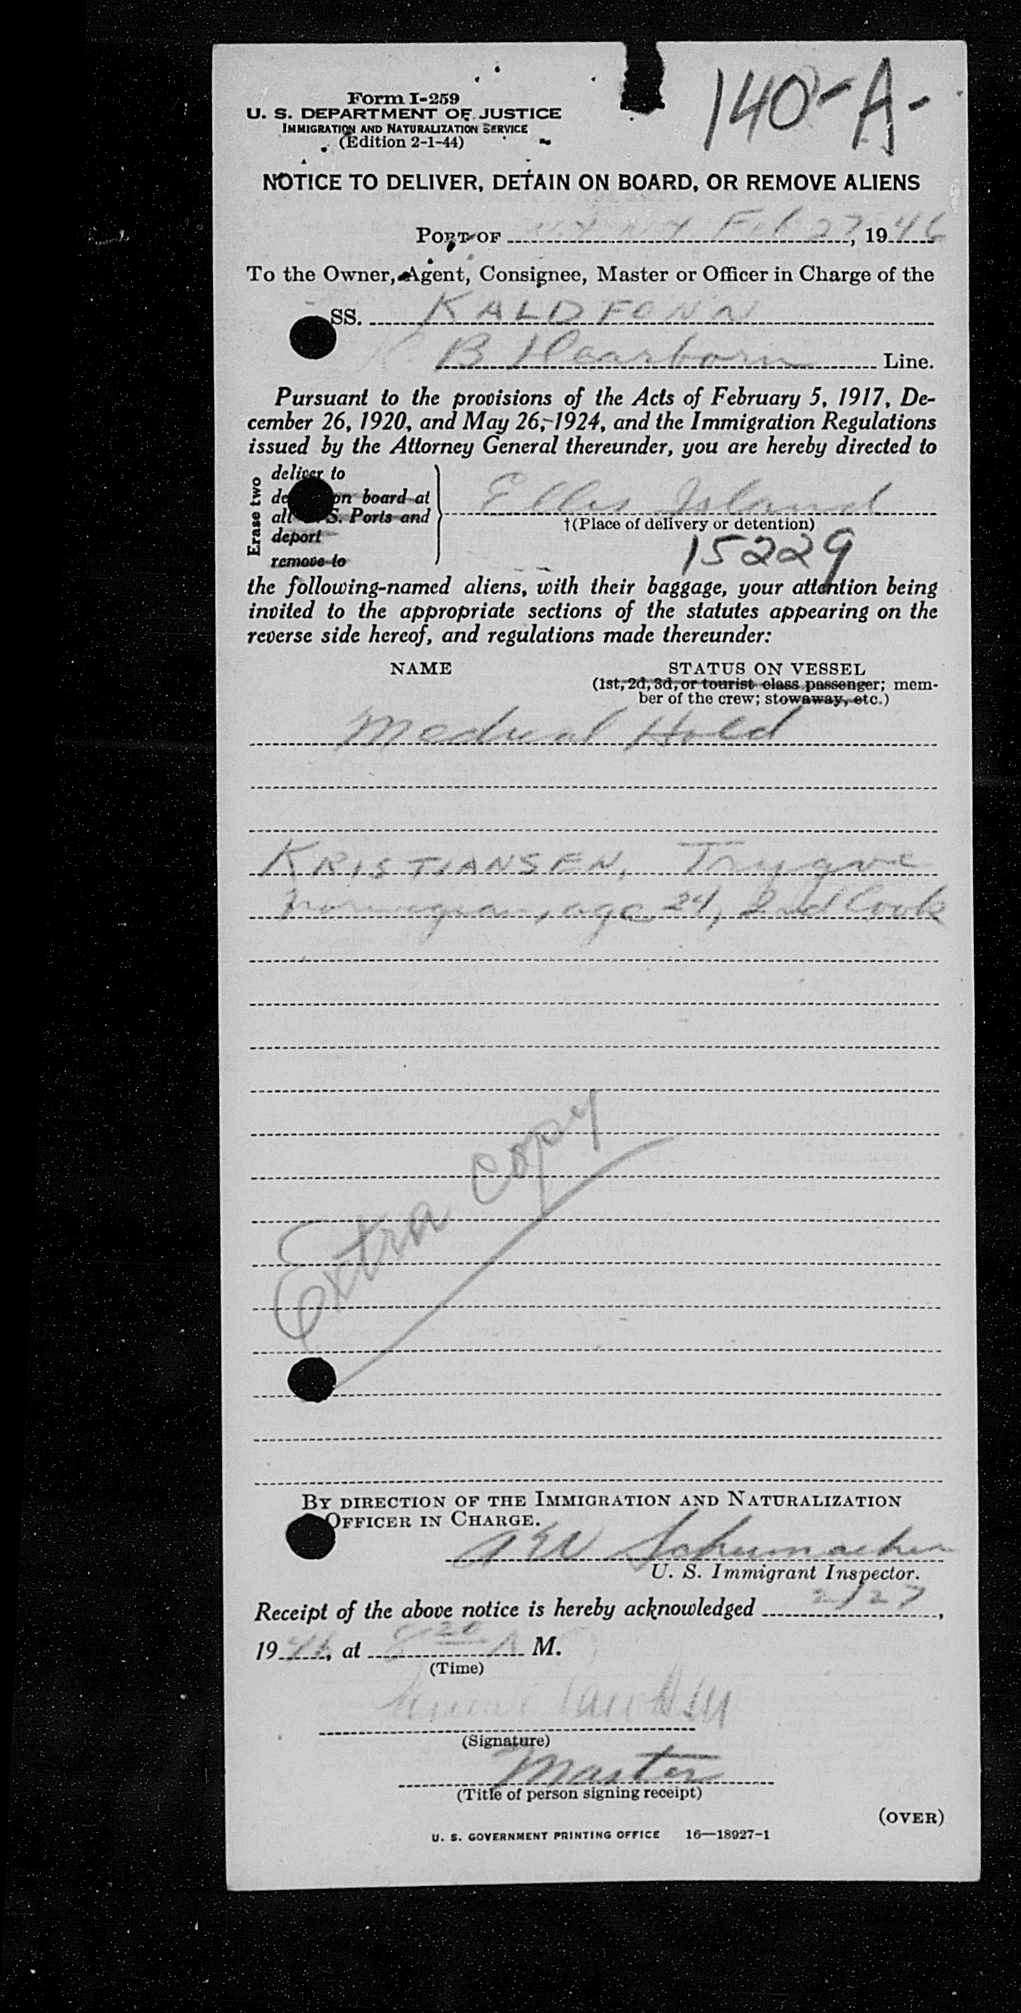 140-A-
Form I-259
U. S. DEPARTMENT OF JUSTICE
IMMIGRATION AND NATURALIZATION SERVICE
(Edition 2-1-44)
NOTICE TO DELIVER, DETAIN ON BOARD, OR REMOVE ALIENS
PORT OF N Y N Y Feb 27, 1946
To the Owner, Agent, Consignee, Master or Officer in Charge of the
SS. KALDFONN
B Line.
Pursuant to the provisions of the Acts of February 5, 1917, De-
cember 26, 1920, and May 26, 1924, and the Immigration Regulations
issued by the Attorney General thereunder, you are hereby directed to
Erase two
deliver to
on board at
all S. Ports and
deport
remove to
Ellis Island
†(Place of delivery or detention)
15229
the following-named aliens, with their baggage, your attention being
invited to the appropriate sections of the statutes appearing on the
reverse side hereof, and regulations made thereunder:
NAME STATUS ON VESSEL
(1st, 2d, 3d, or tourist class passenger; mem-
ber of the crew; stowaway, etc.)
Medical Hold
KRISTIANSEN, Trygve
Norwegian, age 24, 2nd Cook
Extra copy
BY DIRECTION OF THE IMMIGRATION AND NATURALIZATION
OFFICER IN CHARGE.
Schumacher
U. S. Immigrant Inspector.
Receipt of the above notice is hereby acknowledged 2/27,
1946, at 8 20 A M.
(Time)
(Signature)
Master
(Title of person signing receipt)
(OVER)
U. S. GOVERNMENT PRINTING OFFICE 16—18927-1